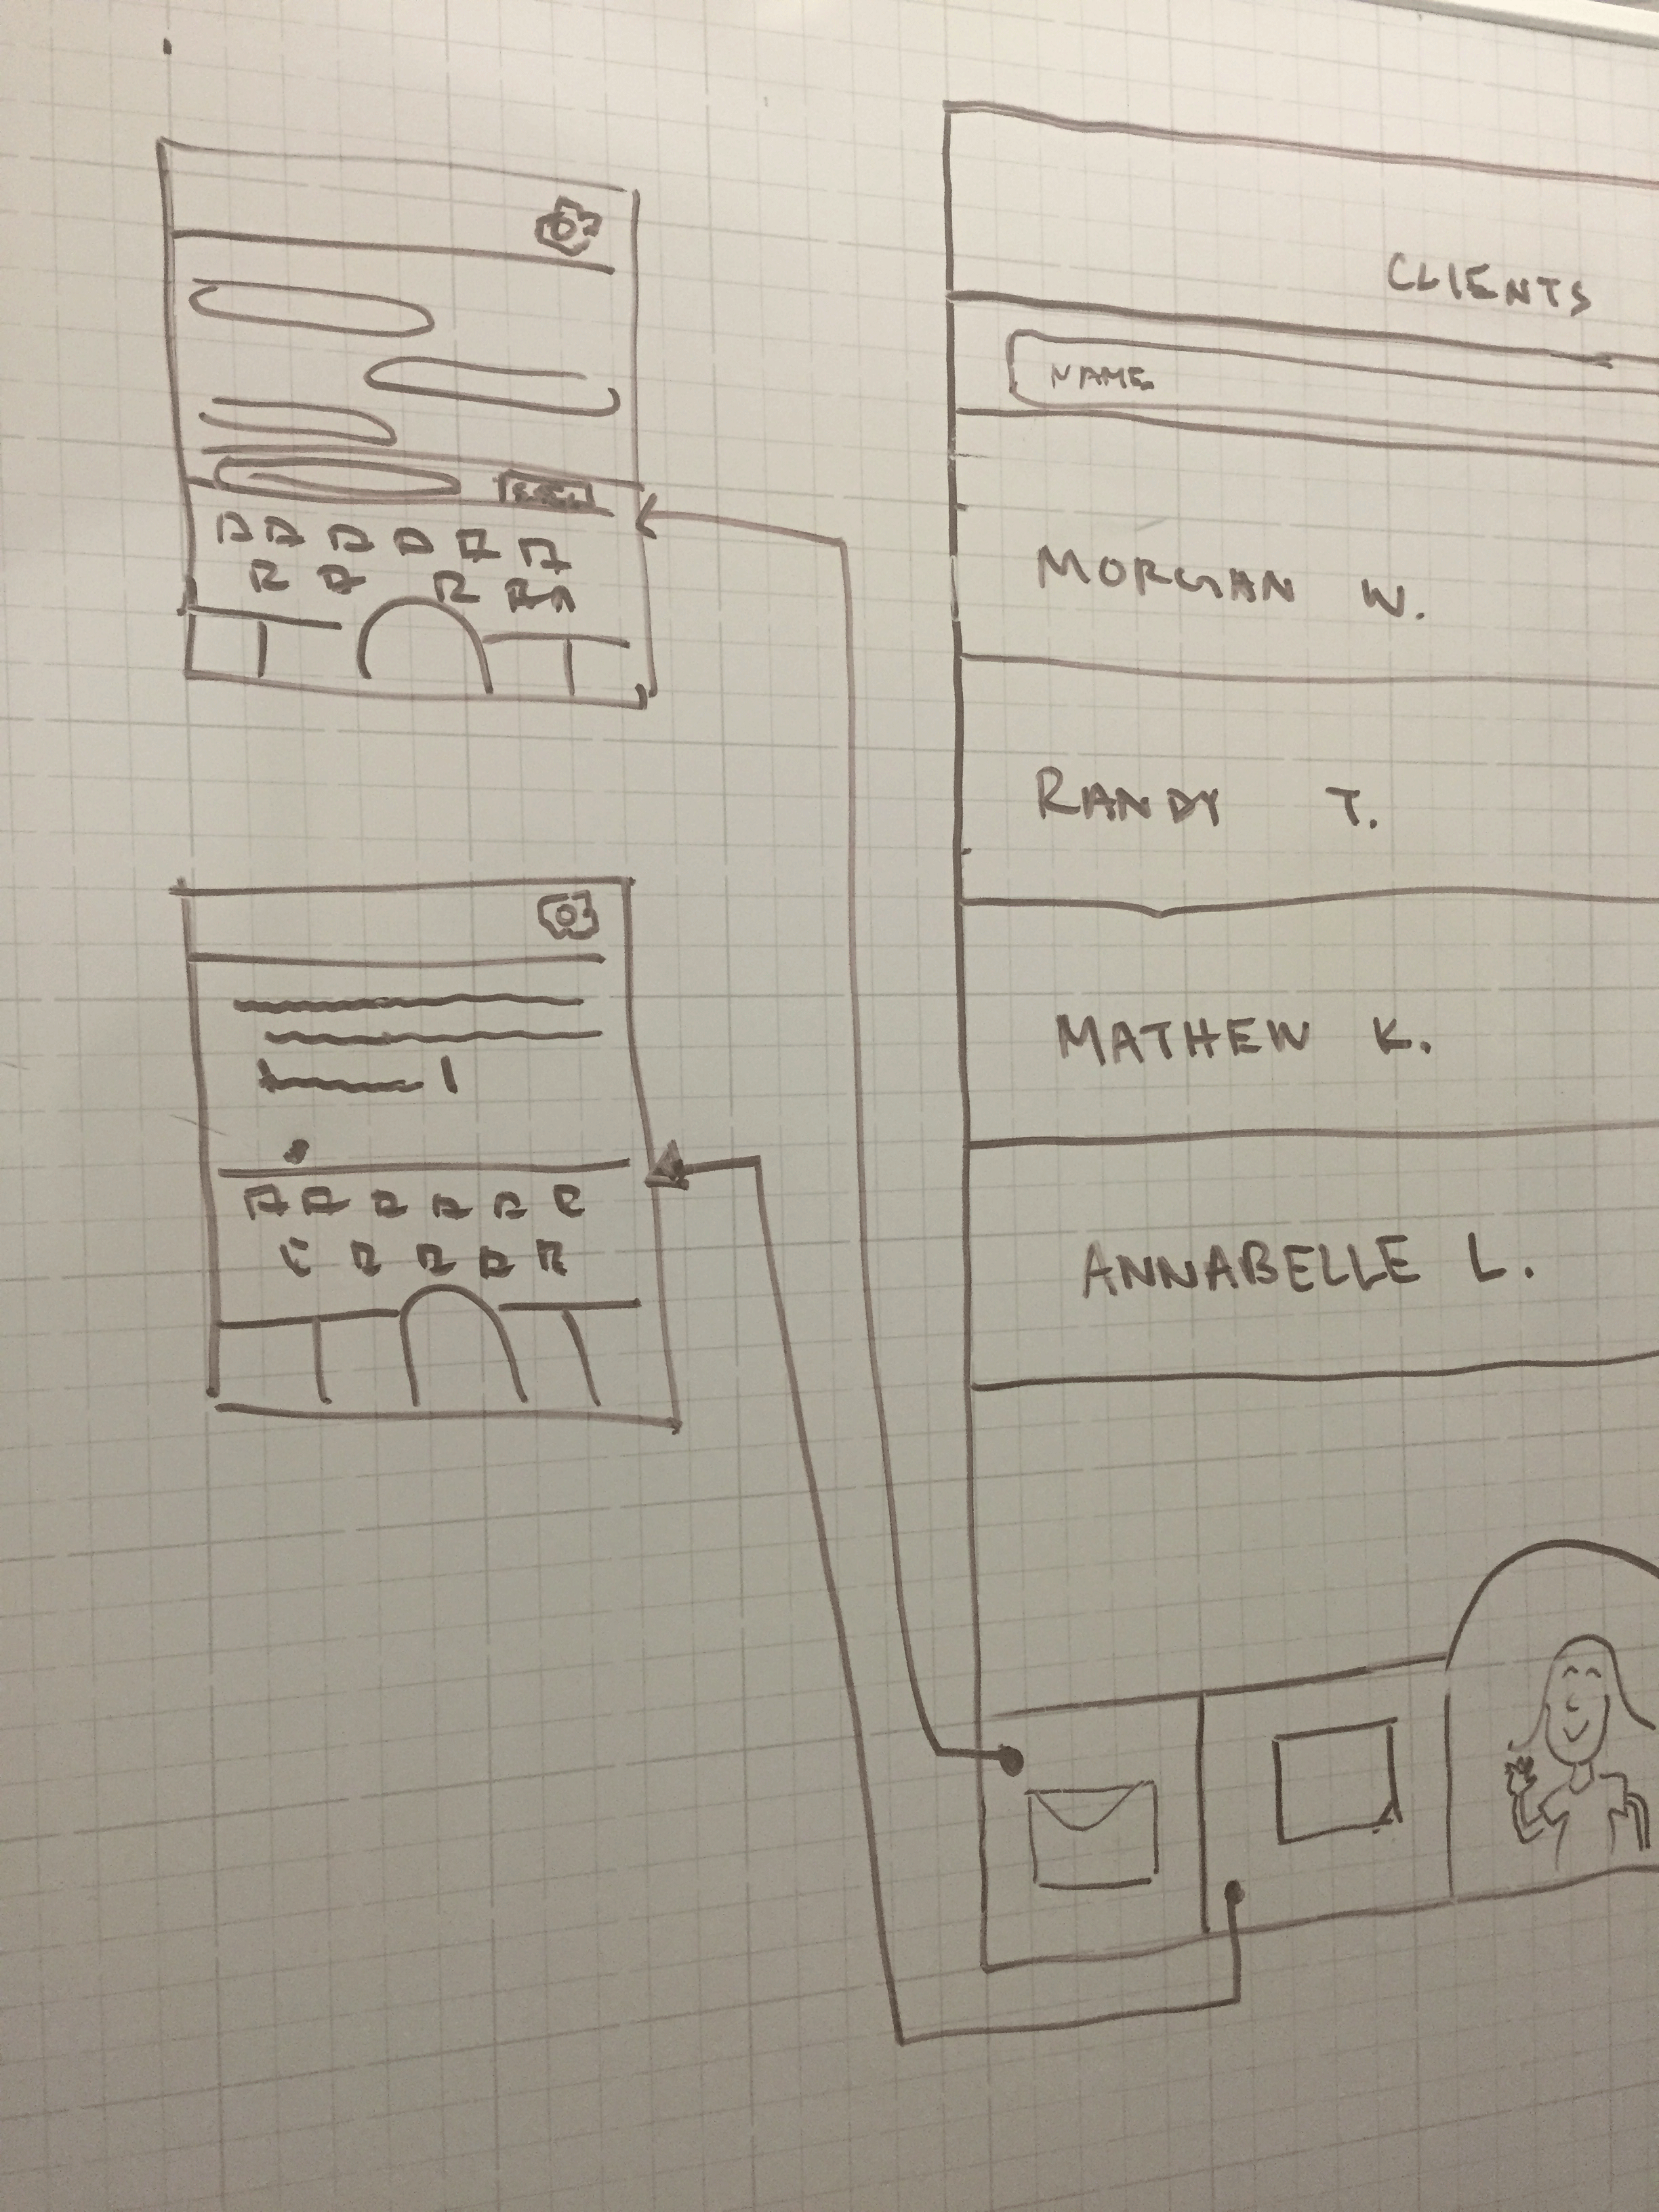 CLIENTS
NAME
MORGAN W.
RANDY T.
MATHEW K.
ANNABELLE L.